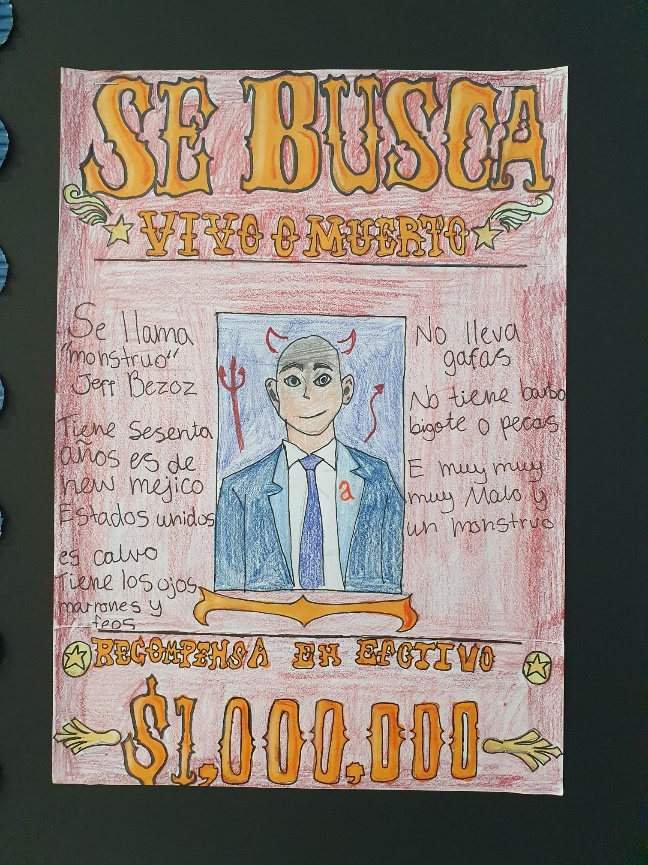 SE BUSCA
VIVO O MUERTO
Se llama
"monstruo"
Jeff Bezoz
Tiene sesenta
años es de
new mejico
Estados unidos
es calvo
Tiene los ojos
marrones y
feos
No lleva
gafas
No tiene barba
bigote o pecas
E muy muy
muy Malo y
un monstruo
a
RECOMPENSA EN EFCTIVO
$1,000,000